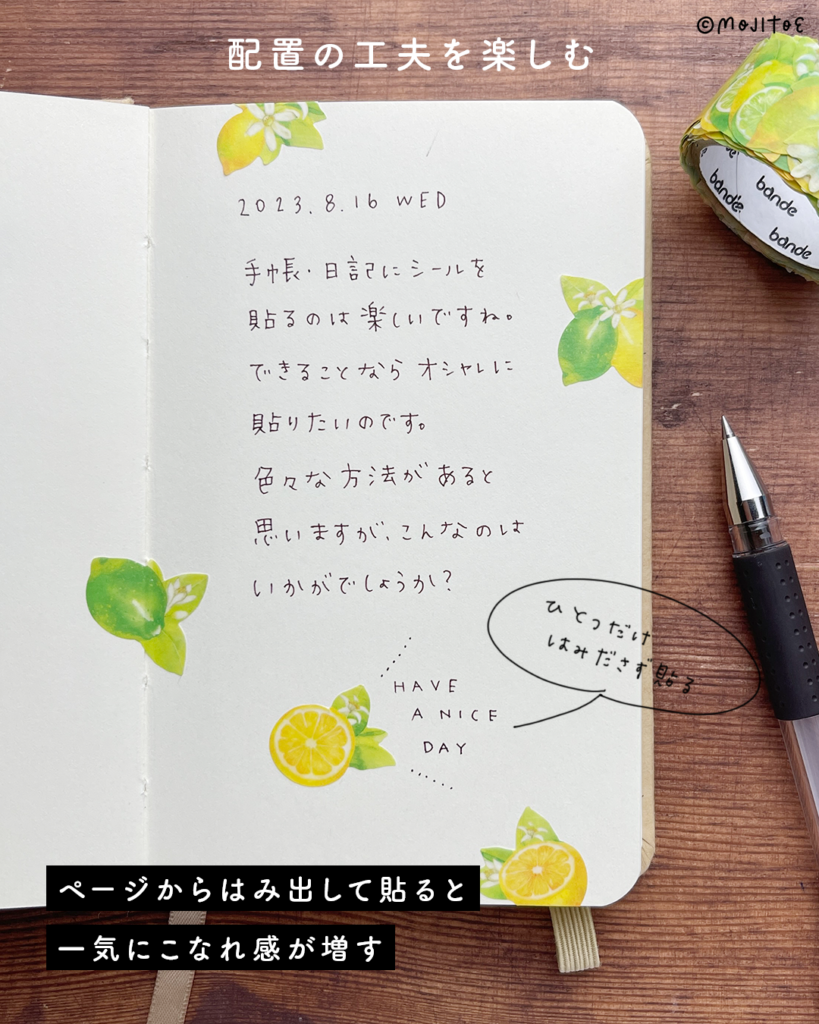 ©MOJITOE
配置の工夫を楽しむ
bande
bande
bande
bande
2023.8.16 WED
手帳・日記にシールを
貼るのは楽しいですね。
できることならオシャレに
貼りたいのです。
色々な方法があると
思いますが、こんなのは
いかがでしょうか?
ひとつだけ
はみださず貼る
HAVE
A NICE
DAY
ページからはみ出して貼ると
一気にこなれ感が増す